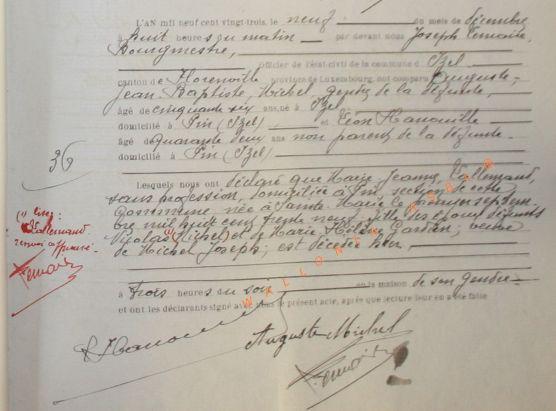 L'AN mil neuf cent vingt-trois, le neuf du mois de décembre
à huit heures du matin par devant nous Joseph Lemaire
Bourgmestre,
officier de l'état-civil de la commune d'Izel
canton de Florenville province de Luxembourg, ont comparu Auguste-
Jean-Baptiste, Michel, gendre de la défunte,
âgé de cinquante six ans, né à Izel
domicilié à Pin (Izel) et Léon Hanouille
âgé de quarante deux ans non parent de la défunte
domicilié à Pin (Izel)
36
Lesquels nous ont déclaré que Marie-Jeanne, Lallemand,
sans profession, domiciliée à Pin section de cette
Commune née à Sainte-Marie le septem-
bre mil huit cent trente neuf, fille des époux défunts
Nicolas (Michel) et de Marie-Hélène ; veuve
de Michel Joseph; est décédée hier
(1) lisez:
Lallemand
renvoi approuvé.
à trois heures du soir en la maison de son gendre
et ont les déclarants signé avec nous le présent acte, après que lecture leur en a été faite
L Hanouille
Auguste Michel
WALLONIE